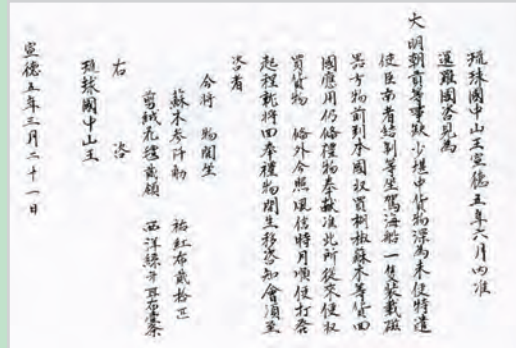 琉球國中山王宣德五年六月內准
暹羅國咨見為
大明朝貢等事缺少堪中貨物深為未便特遣
使臣南者結制等坐駕海船一隻裝載磁
器方物前到本國収買胡椒蘇木等貨回
國應用仍俻禮物奉献准此所從來使収
買貨物 俻外今照風信時月順便打發
起程就將回奉禮物開坐移咨知會須至
咨者
今將 物開坐
蘇木叁仟觔 紅布貳拾匹
剪絨花毯貳領 西洋
右 咨
琉球國中山王
宣德五年三月二十一日